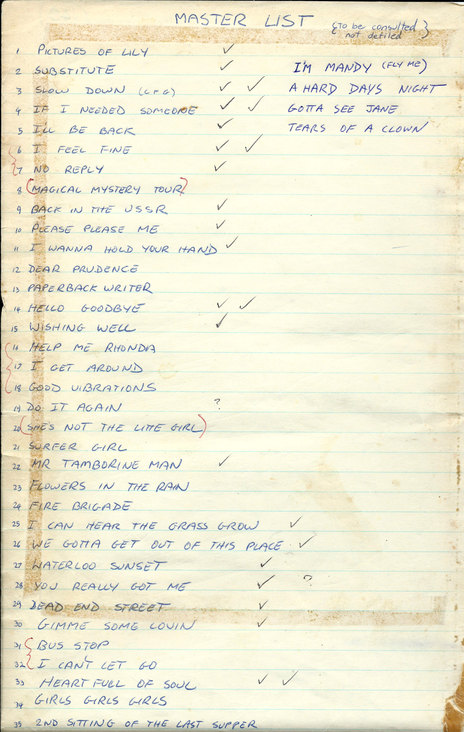 MASTER LIST
{To be consulted
not detiled}
1 PICTURES OF LILY ✓
2 SUBSTITUTE ✓
3 SLOW DOWN ✓ ✓
4 IF I NEEDED SOMEONE ✓ ✓
5 I'LL BE BACK ✓
6 I FEEL FINE ✓ ✓
7 NO REPLY ✓
8 (MAGICAL MYSTERY TOUR)
9 BACK IN THE USSR ✓
10 PLEASE PLEASE ME ✓
11 I WANNA HOLD YOUR HAND ✓
12 DEAR PRUDENCE
13 PAPERBACK WRITER
14 HELLO GOODBYE ✓ ✓
15 WISHING WELL ✓
16 HELP ME RHONDA
17 I GET AROUND
18 GOOD VIBRATIONS
19 DO IT AGAIN ?
20 (SHE'S NOT THE LITTE GIRL)
21 SURFER GIRL
22 MR TAMBORINE MAN ✓
23 FLOWERS IN THE RAIN
24 FIRE BRIGADE
25 I CAN HEAR THE GRASS GROW ✓
26 WE GOTTA GET OUT OF THIS PLACE ✓
27 WATERLOO SUNSET ✓
28 YOU REALLY GOT ME ✓ ?
29 DEAD END STREET ✓
30 GIMME SOME LOVIN ✓
31 BUS STOP
32 I CAN'T LET GO
33 HEART FULL OF SOUL ✓ ✓
34 GIRLS GIRLS GIRLS
35 2ND SITTING OF THE LAST SUPPER
I'M MANDY (FLY ME)
A HARD DAYS NIGHT
GOTTA SEE JANE
TEARS OF A CLOWN